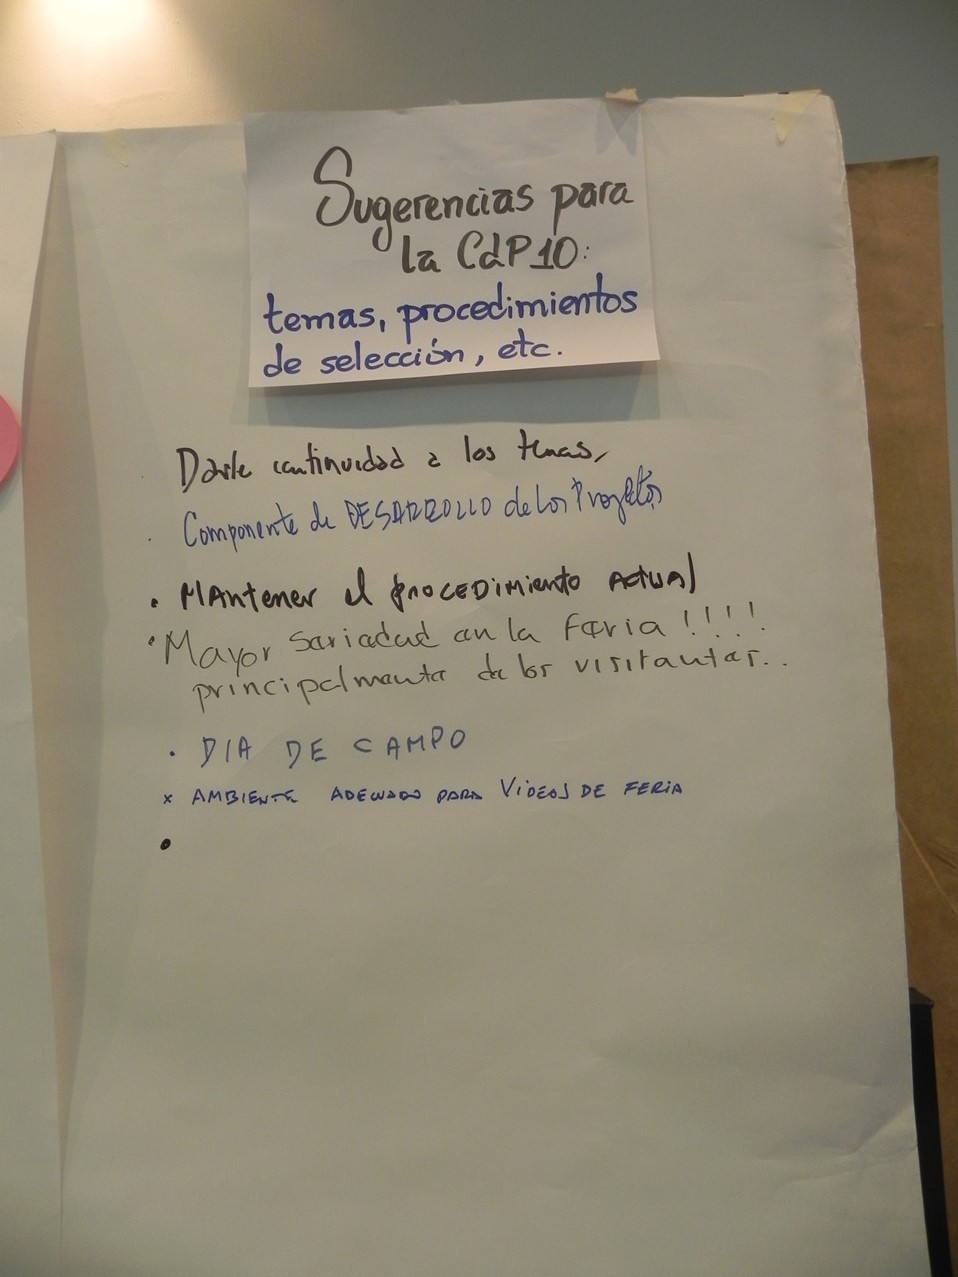 Sugerencias para
la CdP10:
temas, procedimientos
de selección, etc.
Darle continuidad a los temas,
· Componente de DESARROLLO de los Proyectos
• MAntener el procEDimiento ACTUAl
• Mayor sariadad en la faria !!!!
principalmente de los visitantes..
• DIA DE CAMPO
x AMBIENTE ADECUADO PARA VIDEOS DE FERIA
•